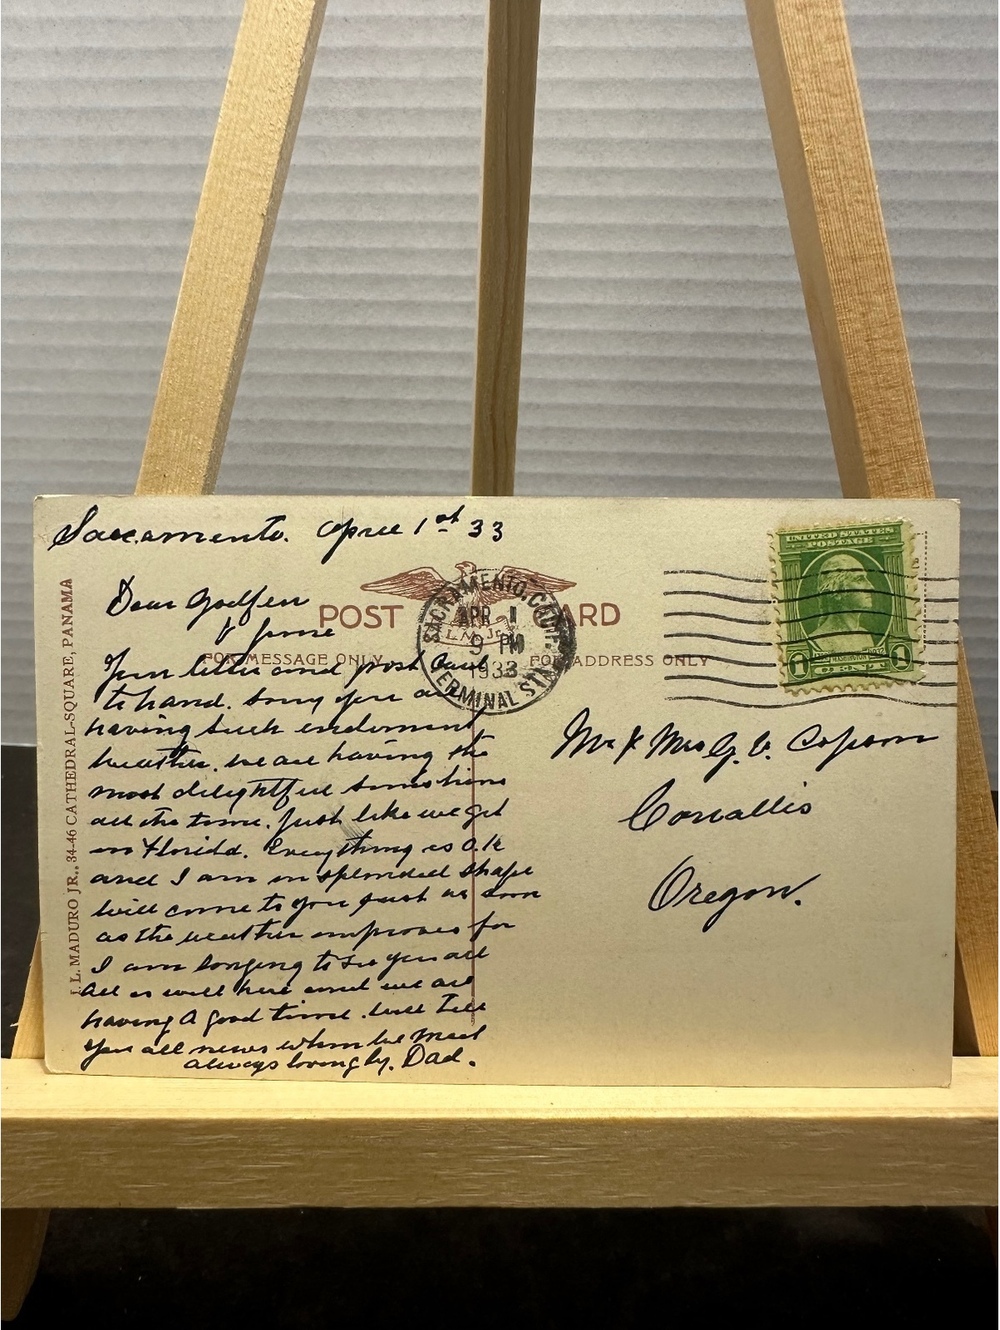 Sacramento. April 1st 33
I. L. MADURO JR., 34-46 CATHEDRAL-SQUARE, PANAMA
POST CARD
FOR MESSAGE ONLY
FOR ADDRESS ONLY
SACRAMENTO, CALIF.
APR 1
9 PM
1933
TERMINAL STA.
UNITED STATES
POSTAGE
1 WASHINGTON 1
CENT
Dear
&
Your letter and post card
to hand. Sorry you are
having such
weather. we are having the
most delightful
all the time. Just like we get
in Florida. Everything is O.K
and I am in splended shape
will come to you just as soon
as the weather improves for
I am longing to see you all
All is well here and we are
having a good time. will tell
you all news when we meet
always lovingly. Dad.
Mr & Mrs G. V. Copson
Corvallis
Oregon.